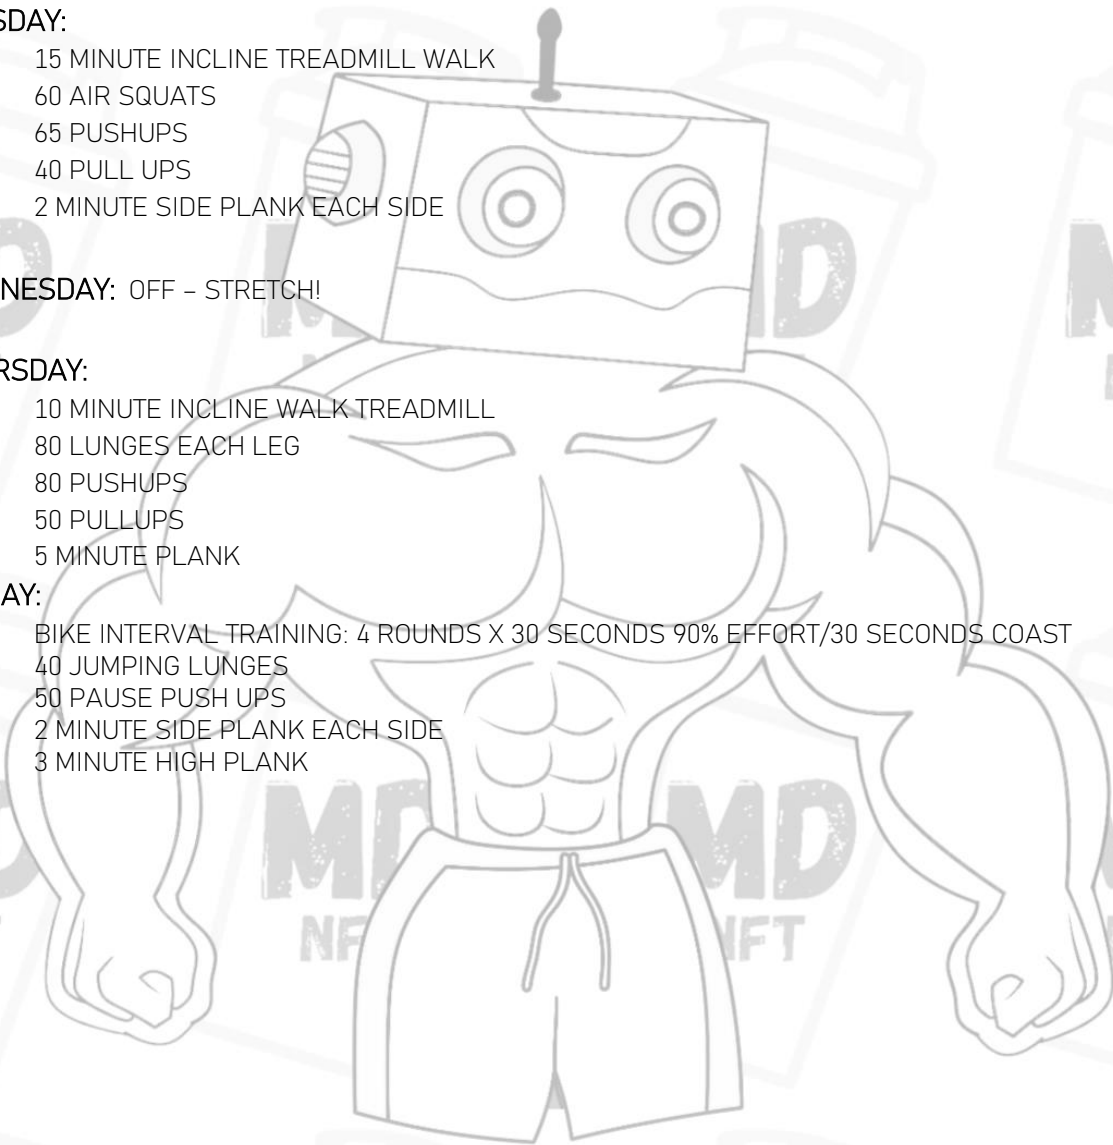 SDAY:
15 MINUTE INCLINE TREADMILL WALK
60 AIR SQUATS
65 PUSHUPS
40 PULL UPS
2 MINUTE SIDE PLANK EACH SIDE
NESDAY: OFF – STRETCH!
RSDAY:
10 MINUTE INCLINE WALK TREADMILL
80 LUNGES EACH LEG
80 PUSHUPS
50 PULLUPS
5 MINUTE PLANK
AY:
BIKE INTERVAL TRAINING: 4 ROUNDS X 30 SECONDS 90% EFFORT/30 SECONDS COAST
40 JUMPING LUNGES
50 PAUSE PUSH UPS
2 MINUTE SIDE PLANK EACH SIDE
3 MINUTE HIGH PLANK
MD MD
NF NFT